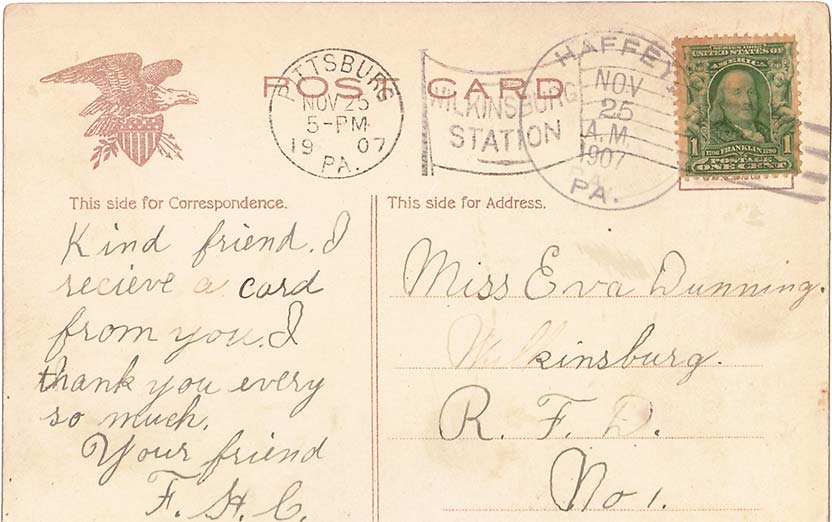 POST CARD
PITTSBURG
NOV 25
5-PM
19 07
PA.
WILKINSBURG
STATION
HAFFEY,
NOV
25
A.M.
1907
PA.
SERIES 1902
UNITED STATES OF
AMERICA
1706 FRANKLIN 1790
1 1
POSTAGE
ONE CENT
This side for Correspondence.
Kind friend. I
recieve a card
from you. I
thank you every
so much.
Your friend
F. H. C.
This side for Address.
Miss Eva Dunning.
Wilkinsburg.
R. F. D.
No 1.